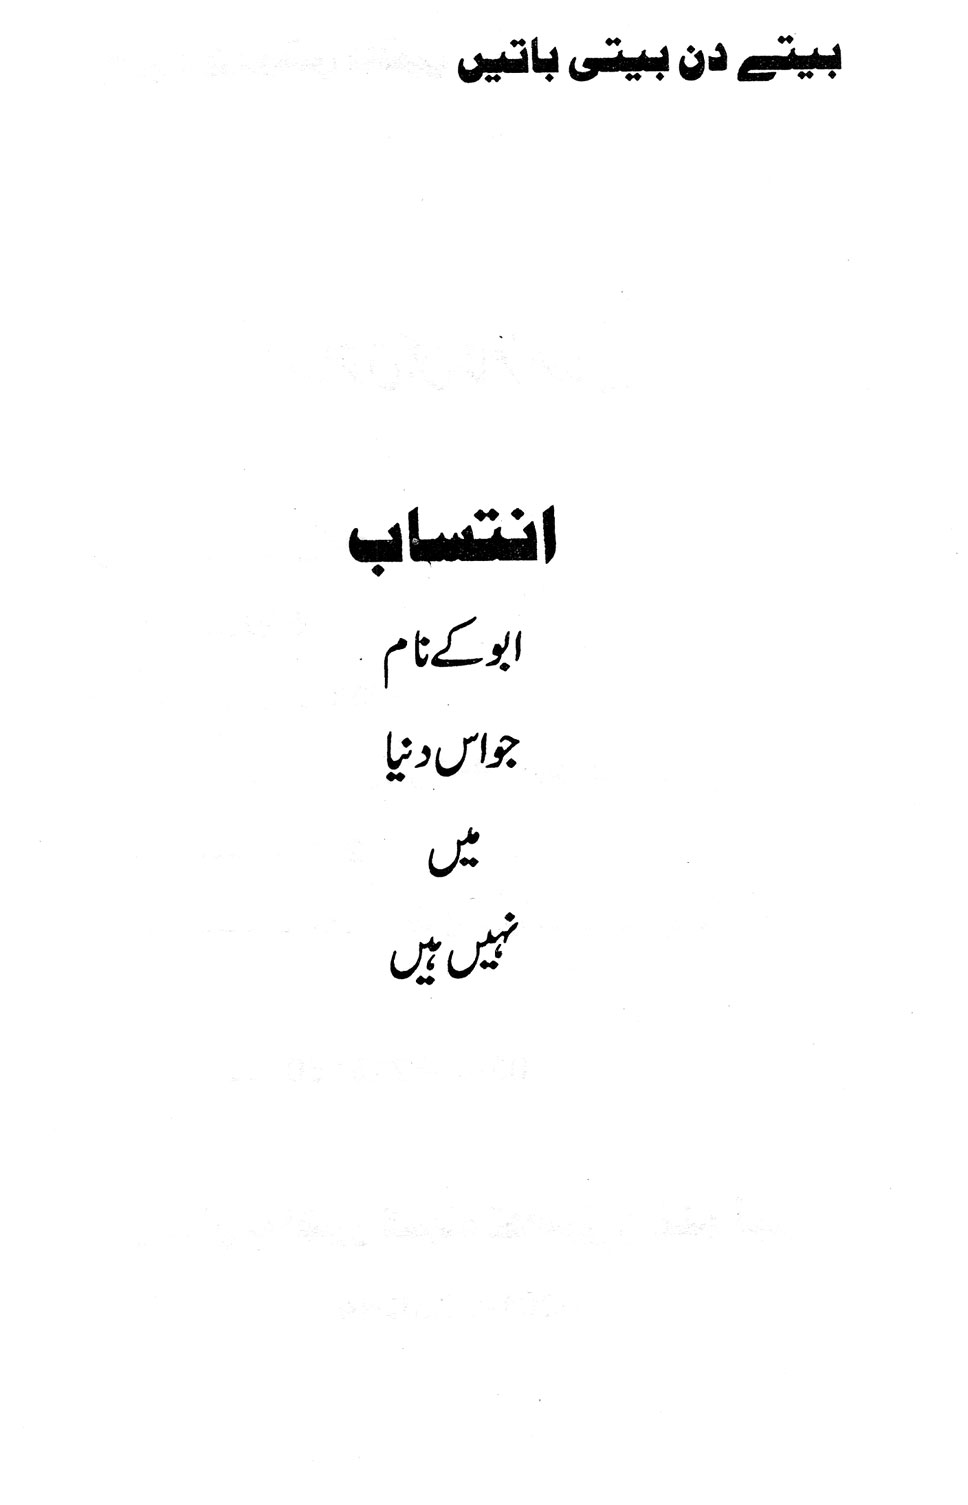 بیتے دن بیتی باتیں
انتساب
ابو کے نام
جو اس دنیا
میں
نہیں ہیں